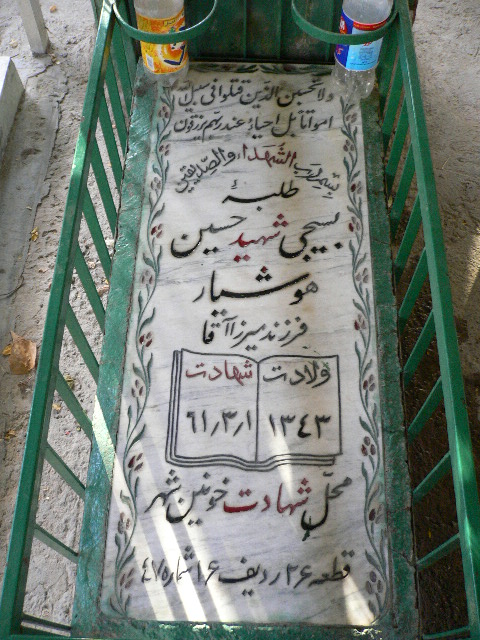 ولا تحسبن الذین قتلوا فی سبیل الله
امواتا بل احیاء عند ربهم یرزقون
بسم رب الشهداء والصدیقین
طلبهٔ
بسیجی شهید حسین
هوشیار
فرزند میرزاآقا
ولادت شهادت
۱۳٤۳ ۶۱/۳/۱
محل شهادت خونین شهر
قطعه ۲۶ ردیف ۱۶ شماره ۴۷